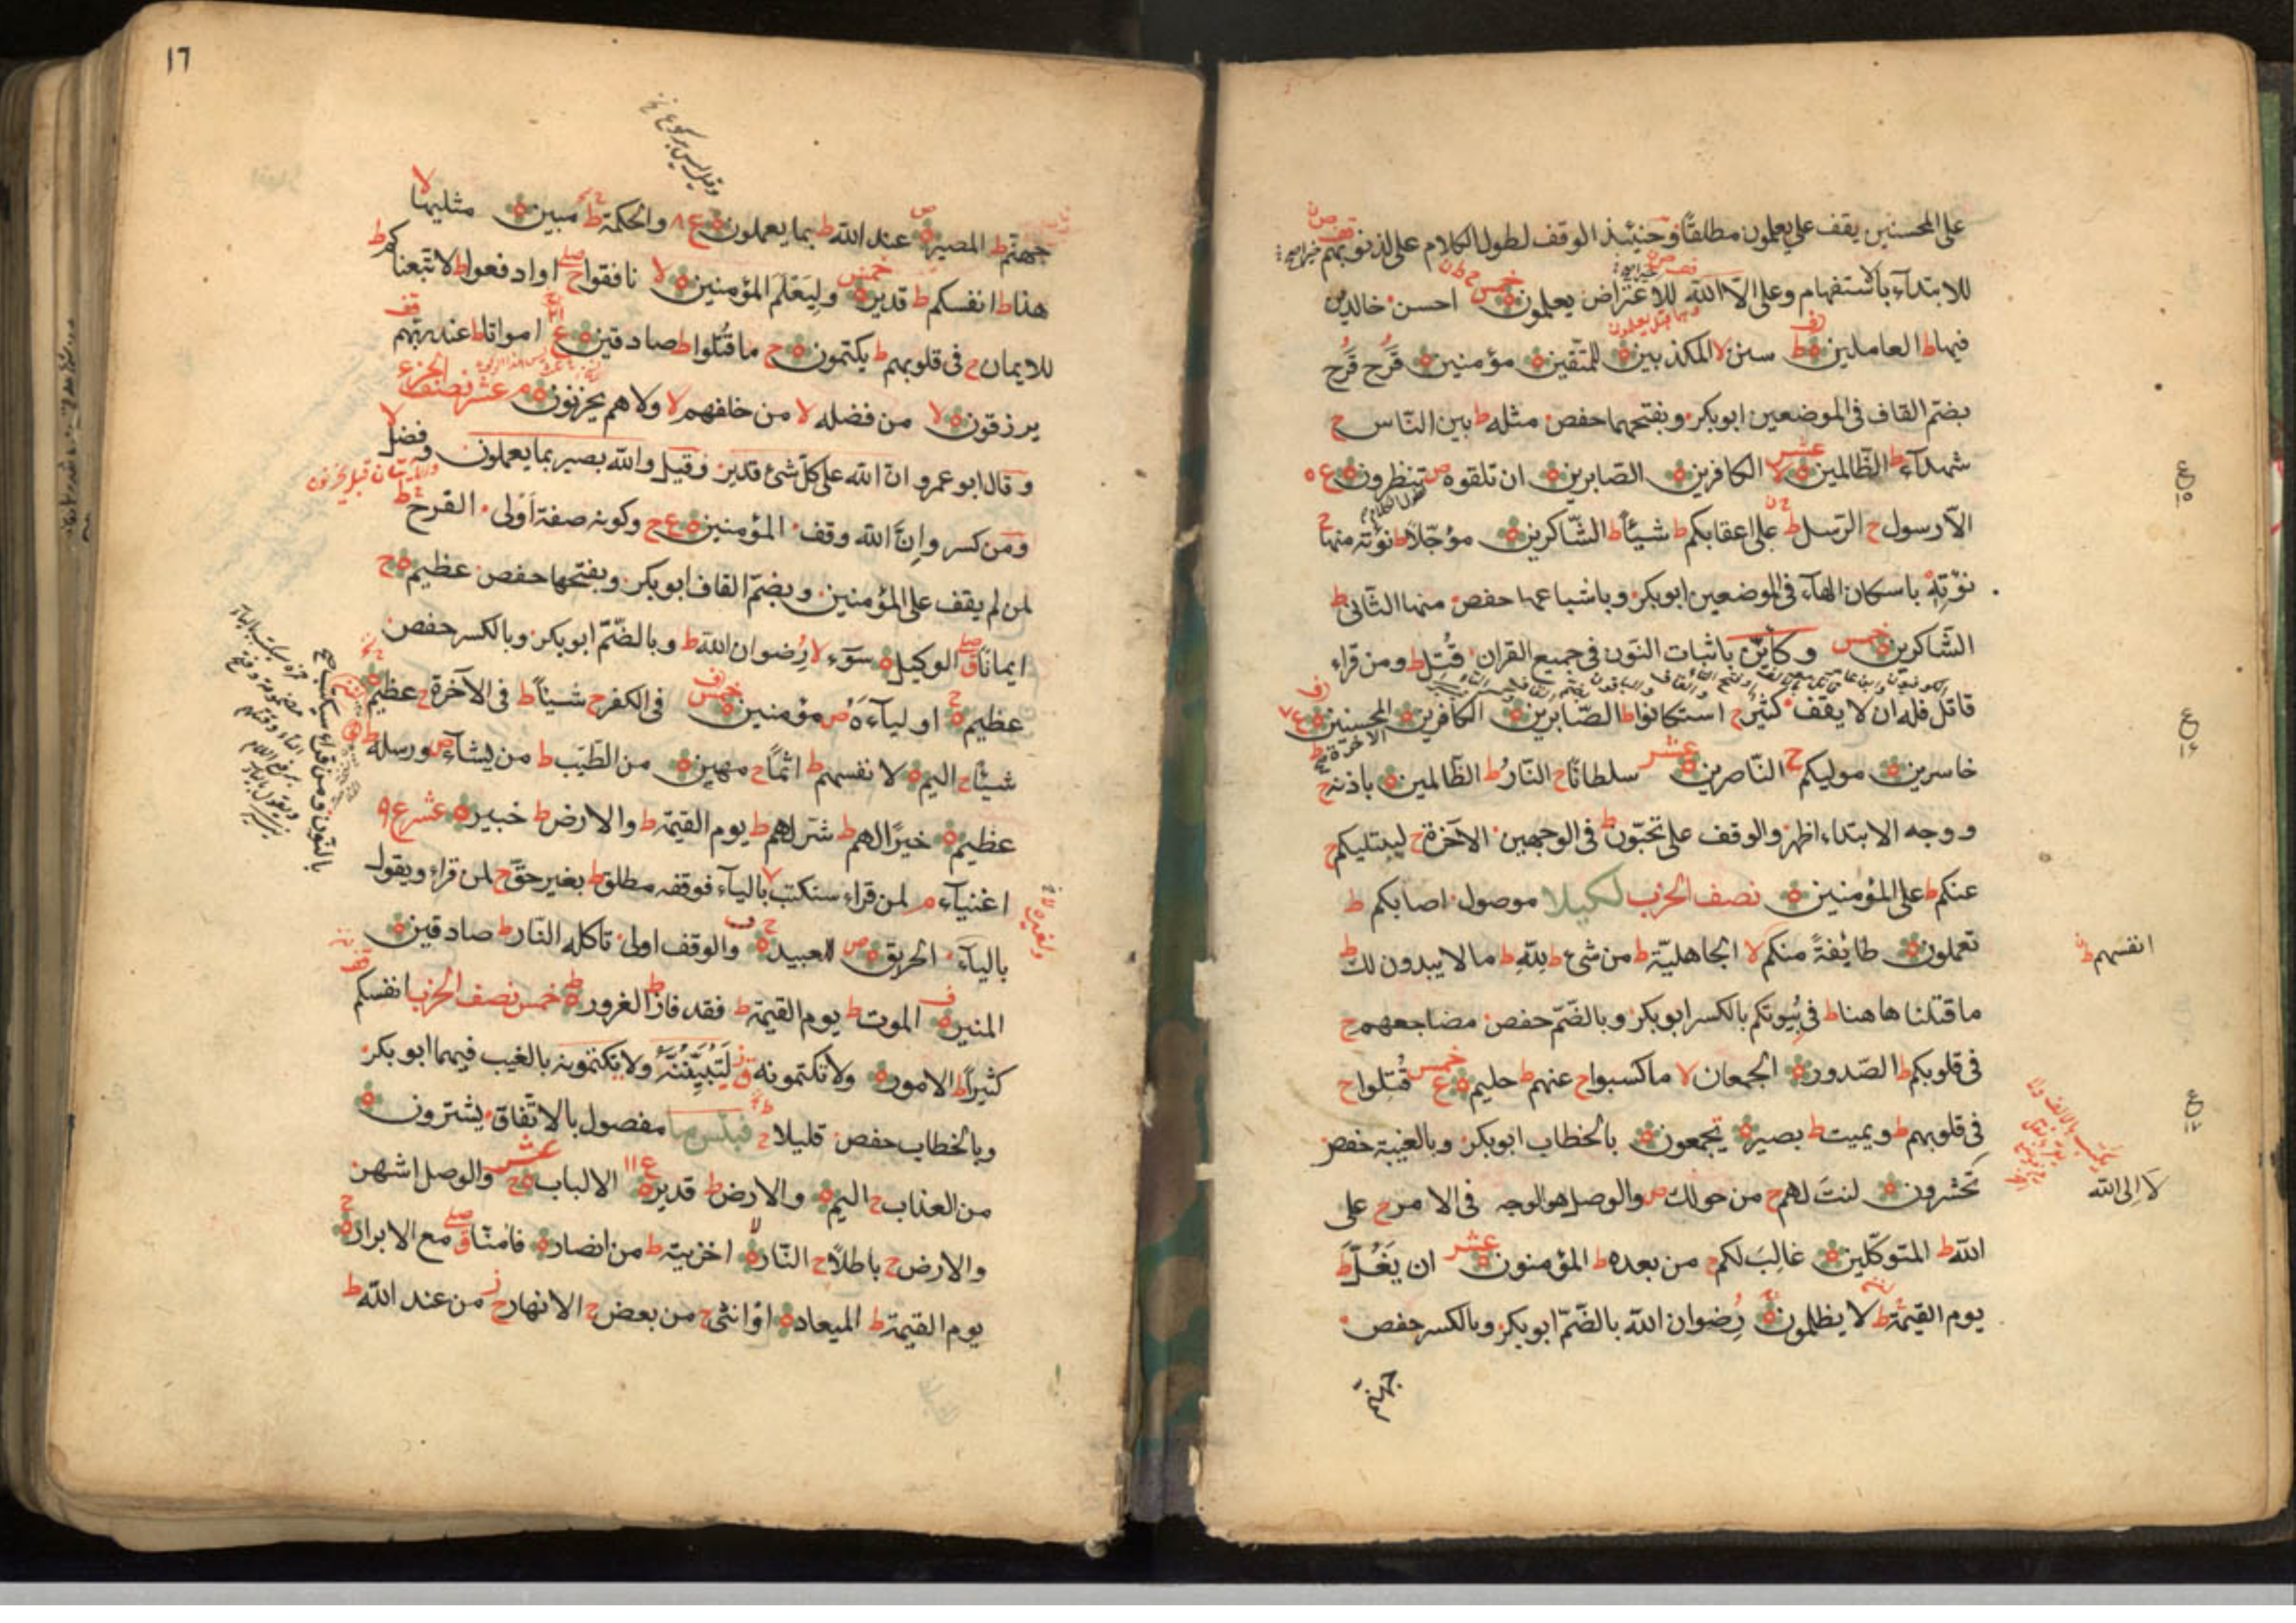 على المحسنين يقف على يعلمون مطلقًا وحينئذ الوقف لطول الكلام على لذنوبهم
للابتداء بالاستفهام وعلى الا الله للاعتراض يعلمون خمس احسن خالدين
فيها ط العاملين ط سنن لا المكذبين للمتقين مؤمنين قَرْح قُرْح
بضم القاف فى الموضعين ابوبكر وبفتحهما حفص مثله ط بين الناس ح
شهدآء ط الظّالمين لا عشر الكافرين الصّابرين ان تلقوه ص تنظرون ع ٥
الّا رسول ح الرّسل ط على اعقابكم ط شيئًا ط الشّاكرين مؤجّلًا ط نؤته منها ح
نؤتِهْ باسكان الهآء فى الموضعين ابوبكر وباشباعها حفص منها الثّانى ط
الشّاكرين خمس وكأيّن باثبات النّون فى جميع القران قُتِل ط ومن قراء
قاتل فله ان لا يقف كثير ح استكانوا ط الصّابرين الكافرين المحسنين ع
الآخرة ط
خاسرين موليكم ح النّاصرين عشر سلطانًا ح النّار ط الظّالمين باذنه ح
ووجه الابتداء اظهر والوقف على تحبّون ط فى الوجهين الآخرة ح ليبتليكم ح
عنكم ط على المؤمنين نصف الحزب لكيلا موصول اصابكم ط
تعملون طائفةً منكم لا الجاهليّة ط من شئ ط للّه ط ما لا يبدون لك ط
انفسهم ط
ما قتلنا هاهنا ط فى بيوتكم بالكسر ابوبكر وبالضّمّ حفص مضاجعهم ح
فى قلوبكم ط الصّدور الجمعان لا ما كسبوا ح عنهم ط حليم ع خمس قُتِلوا ح
فى قلوبهم ط ويميت ط بصير تجمعون بالخطاب ابوبكر وبالغيبة حفص
تحشرون لنتَ لهم ح من حولك ص والوصل هو الوجه فى الامر ح على
لا الى الله
الله ط المتوكّلين غالب لكم ح من بعده ط المؤمنون عشر ان يَغُلّ ط
يوم القيمة ط لا يظلمون رضوان الله بالضّمّ ابوبكر وبالكسر حفص
١٦
جهنّم ط المصير عند الله ط بما يعملون ع ٨ والحكمة ط مبين مثليها لا
هذا ط انفسكم ط قدير خمس وليعلم المؤمنين لا نافقوا ح او ادفعوا ط لاتّبعناكم ط
للايمان ح فى قلوبهم ط يكتمون ح ما قُتلوا ط صادقين ع امواتا ط عند ربّهم
يرزقون لا من فضله لا من خلفهم لا ولا هم يحزنون م عشر نصف الجزء وفضل لا
وقال ابو عمرو انّ الله على كلّ شئ قدير وقيل والله بصير بما يعملون
ومن كسر وإنّ الله وقف المؤمنين ع ح وكونه صفة أولى القرح ط
لمن لم يقف على المؤمنين وبضمّ القاف ابوبكر وبفتحها حفص عظيم ح
ايمانًا ق الوكيل سوء لا رضوان الله ط وبالضّمّ ابوبكر وبالكسر حفص
عظيم اولياءه ص مؤمنين خمس فى الكفر ح شيئًا ط فى الآخرة ح عظيم
شيئًا ح اليم لانفسهم ط اثمًا ح مهين من الطّيّب ط من يشاء ص ورسله ط
عظيم خيرًا لهم ط شرّ لهم ط يوم القيمة ط والارض ط خبير عشر ع ٩
اغنيآء م لمن قراء سنكتب بالياء فوقفه مطلق ط بغير حقّ ح لمن قراء ويقول
بالياء الحريق ص للعبيد والوقف اولى تاكله النّار ط صادقين
المنير الموت ط يوم القيمة ط فقد فاز ط الغرور خمس نصف الحزب انفسكم
كثيرًا ط الامور ولا تكتمونه ز لَتُبَيِّنُنَّهُ ولا يكتمونه بالغيب فيهما ابوبكر
وبالخطاب حفص قليلا ط فبئس ما مفصول بالاتّفاق يشترون
من العذاب ح اليم والارض ط قدير ع ١١ الالباب ح عشر والوصل اشهر
والارض ح باطلًا ح النّار اخزيته ط من انصار فامنّا ق مع الابرار ح
يوم القيمة ط الميعاد او انثى ح من بعض ح الانهار ح من عند الله ط